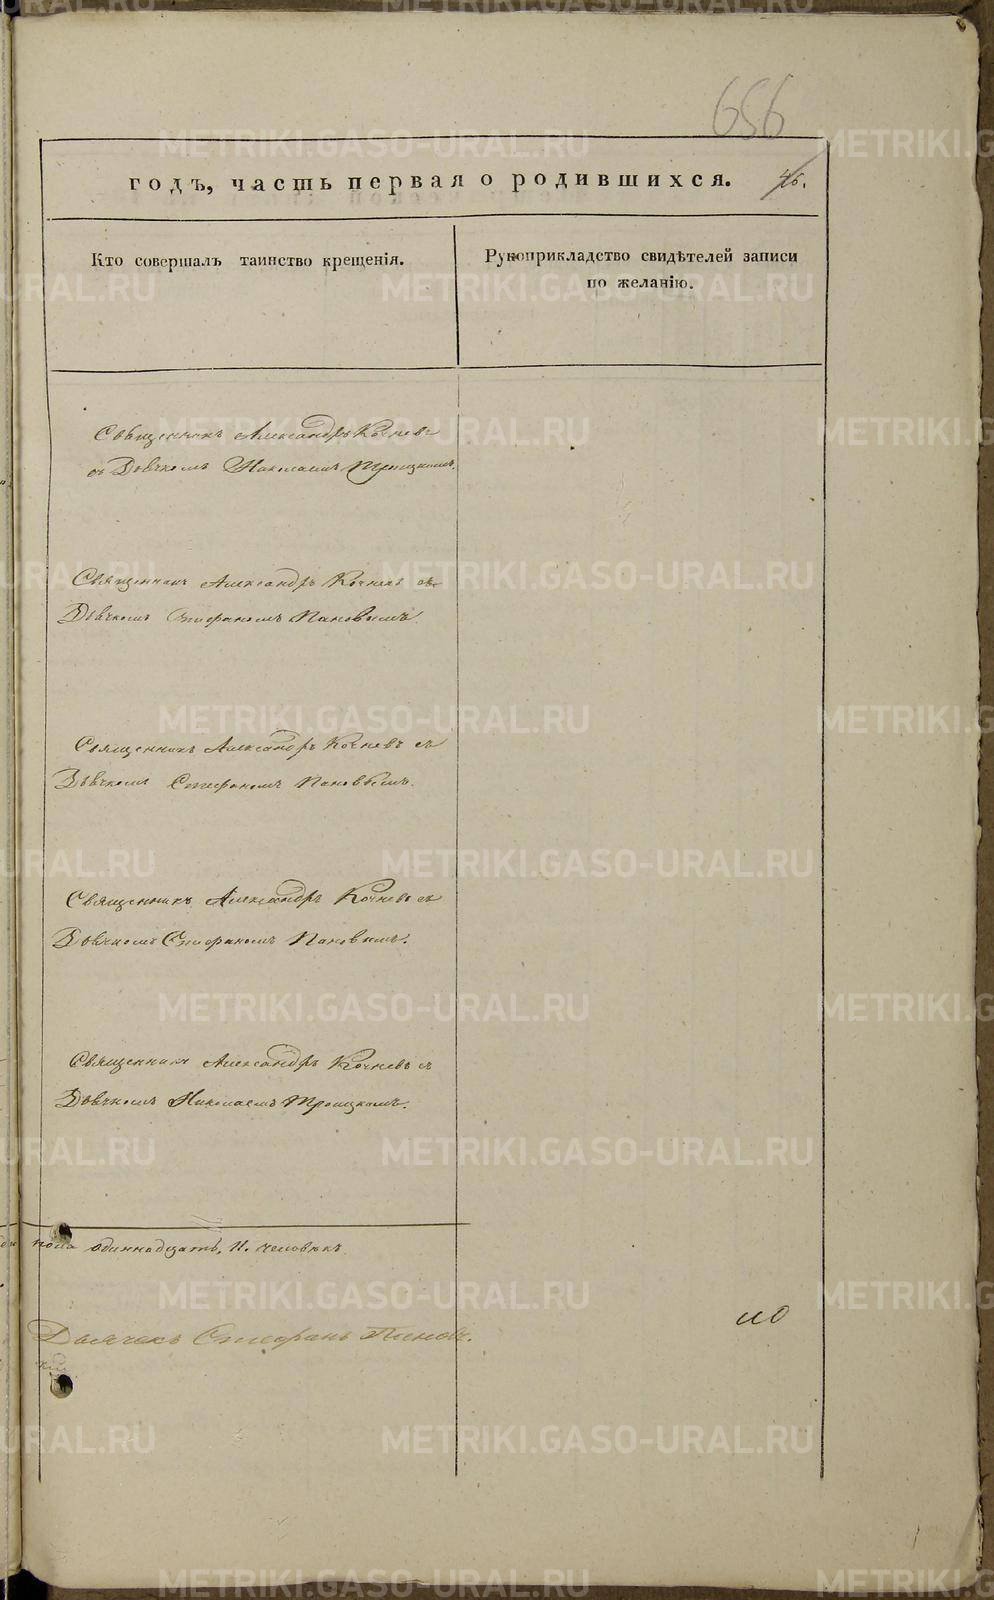 656
годъ, часть первая о родившихся. 46.
Кто совершалъ таинство крещенія.
Рукоприкладство свидѣтелей записи
по желанію.
Священникъ Александръ Кочневъ
съ Дьячкомъ Николаемъ Троицкимъ.
Священникъ Александръ Кочневъ съ
Дьячкомъ Стефаномъ Пановымъ.
Священникъ Александръ Кочневъ съ
Дьячкомъ Стефаномъ Пановымъ.
Священникъ Александръ Кочневъ съ
Дьячкомъ Стефаномъ Пановымъ.
Священникъ Александръ Кочневъ съ
Дьячкомъ Николаемъ Троицкимъ.
пола одиннадцать, 11. человѣкъ
Дьячекъ Стефанъ Пановъ.
METRIKI.GASO-URAL.RU